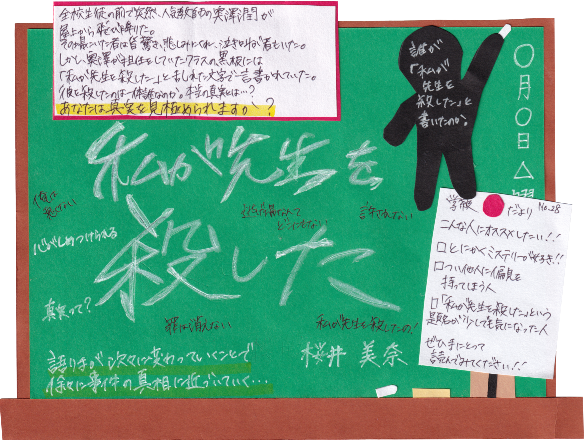 全校生徒の前で突然、人気教員の奥澤潤が
屋上から飛び降りた。
その場にいた者は皆驚き、悲しみにくれ、泣き叫ぶ者もいた。
しかし、奥澤が担任をしていたクラスの黒板には
「私が先生を殺した」と書かれた文字が
彼を殺したのは一体誰なのか。本当の真実とは…?
あなたは真実を見極められますか?
誰が
「私が
先生を
殺した」と
書いたのか。
〇月〇日△曜
私が先生を
殺した
許されない
心がしめつけられる
真実って?
罪は消えない
私が先生を殺したの!
桜井 美奈
語り手が次々に変わっていくことで
徐々に事件の真相に近づいていく…
学校だより No.28
こんな人にオススメしたい!!
□とにかくミステリーが好き!!
□つい他人に偏見を
持ってしまう人
□「私が先生を殺した」という
題名が少しでも気になった人
ぜひ手にとって
読んでみてください!!